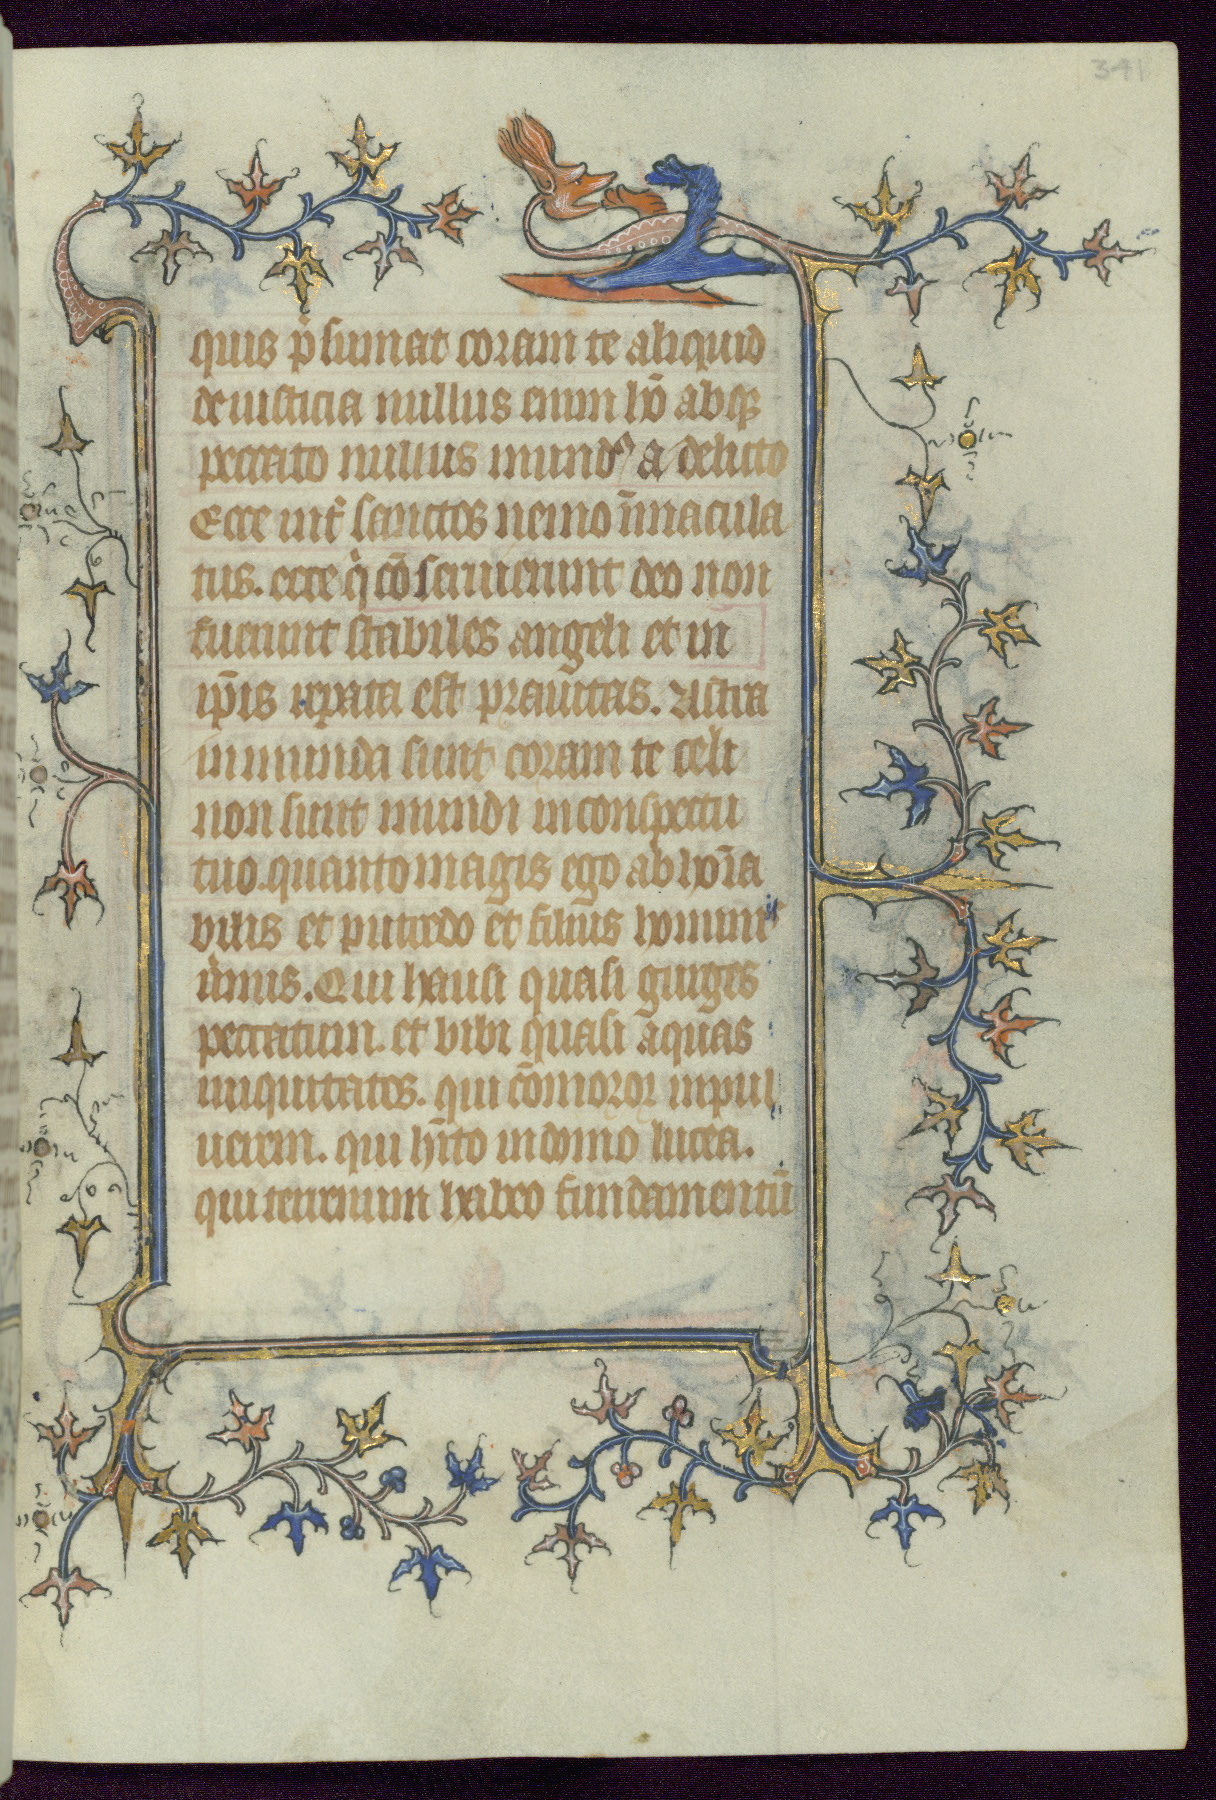 341
quis p̄sumat coram te aliquid
de iusticia nullus enim hō absq;
peccato nullus mundꝰ a delicto
Ecce int̄ sanctos nemo īmacula
tus. ecce q̇ cō seruierunt deo non
fuerunt stabiles angeli et in
ip̄is rep̲ata est prauitas. Astra
inmunda sunt coram te celi
non sunt mundi in conspectu
tuo. quanto magis ego abhoīa
bilis et putredo et filius homini
u̇mus. Qui hausi quasi gurges
peccatum. et bibi quasi aquas
iniquitates. qui cōmoror in pul
uerem. qui hīto in domo lutea.
qui terrenum habeo fundamentū